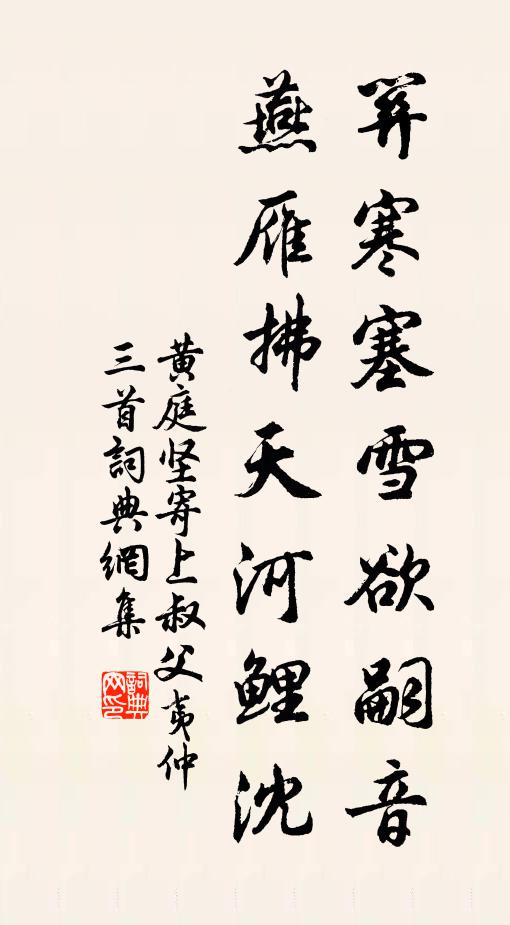 筭寒塞雪欲嗣音
燕雁拂天河鲤沈
黄庭坚寄上叔父夷仲
三首詞典網集
詞典网印